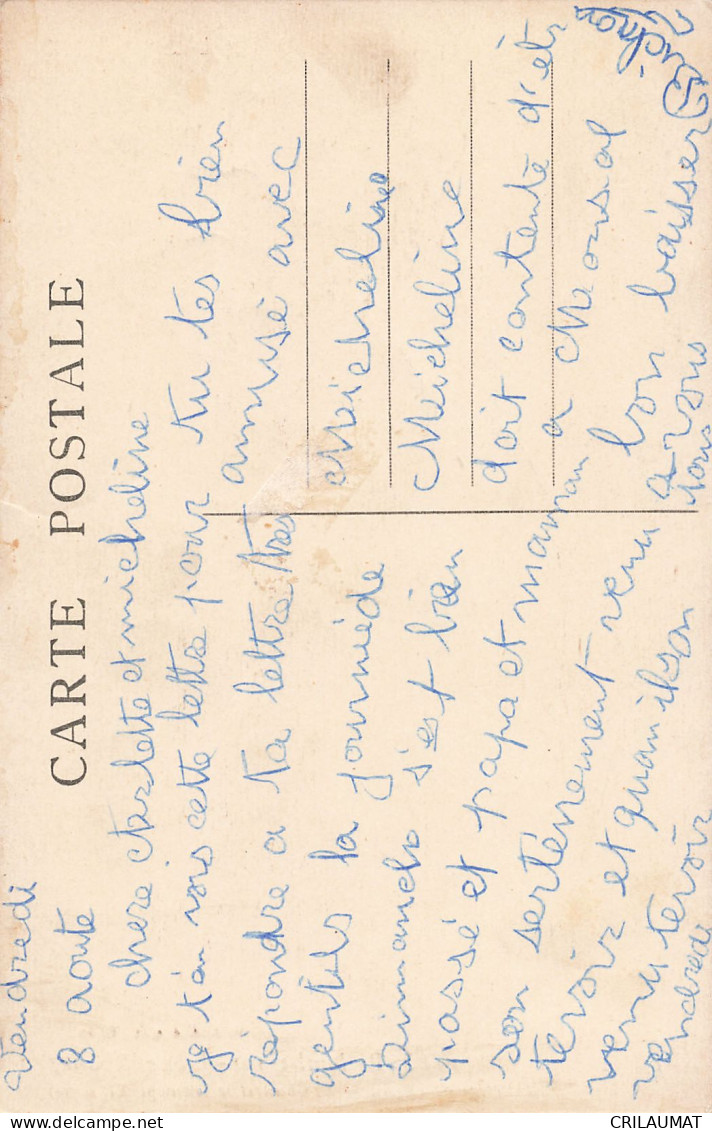 CARTE POSTALE
Vendredi
8 aoute
chere charlette et micheline
je t'en vois cette lettre pour
répondre a ta lettre tres
gentils la journiéde
Dimanche s'est bien
passé et papa et maman
son sertenement venu
te voir et quan il son
venu te voir
vendredi
tu tes bien
amusé avec
Meicheline
Meicheline
doit contente d'étr
a Monsal
bon baisser
a vous
tous
CRILAUMAT